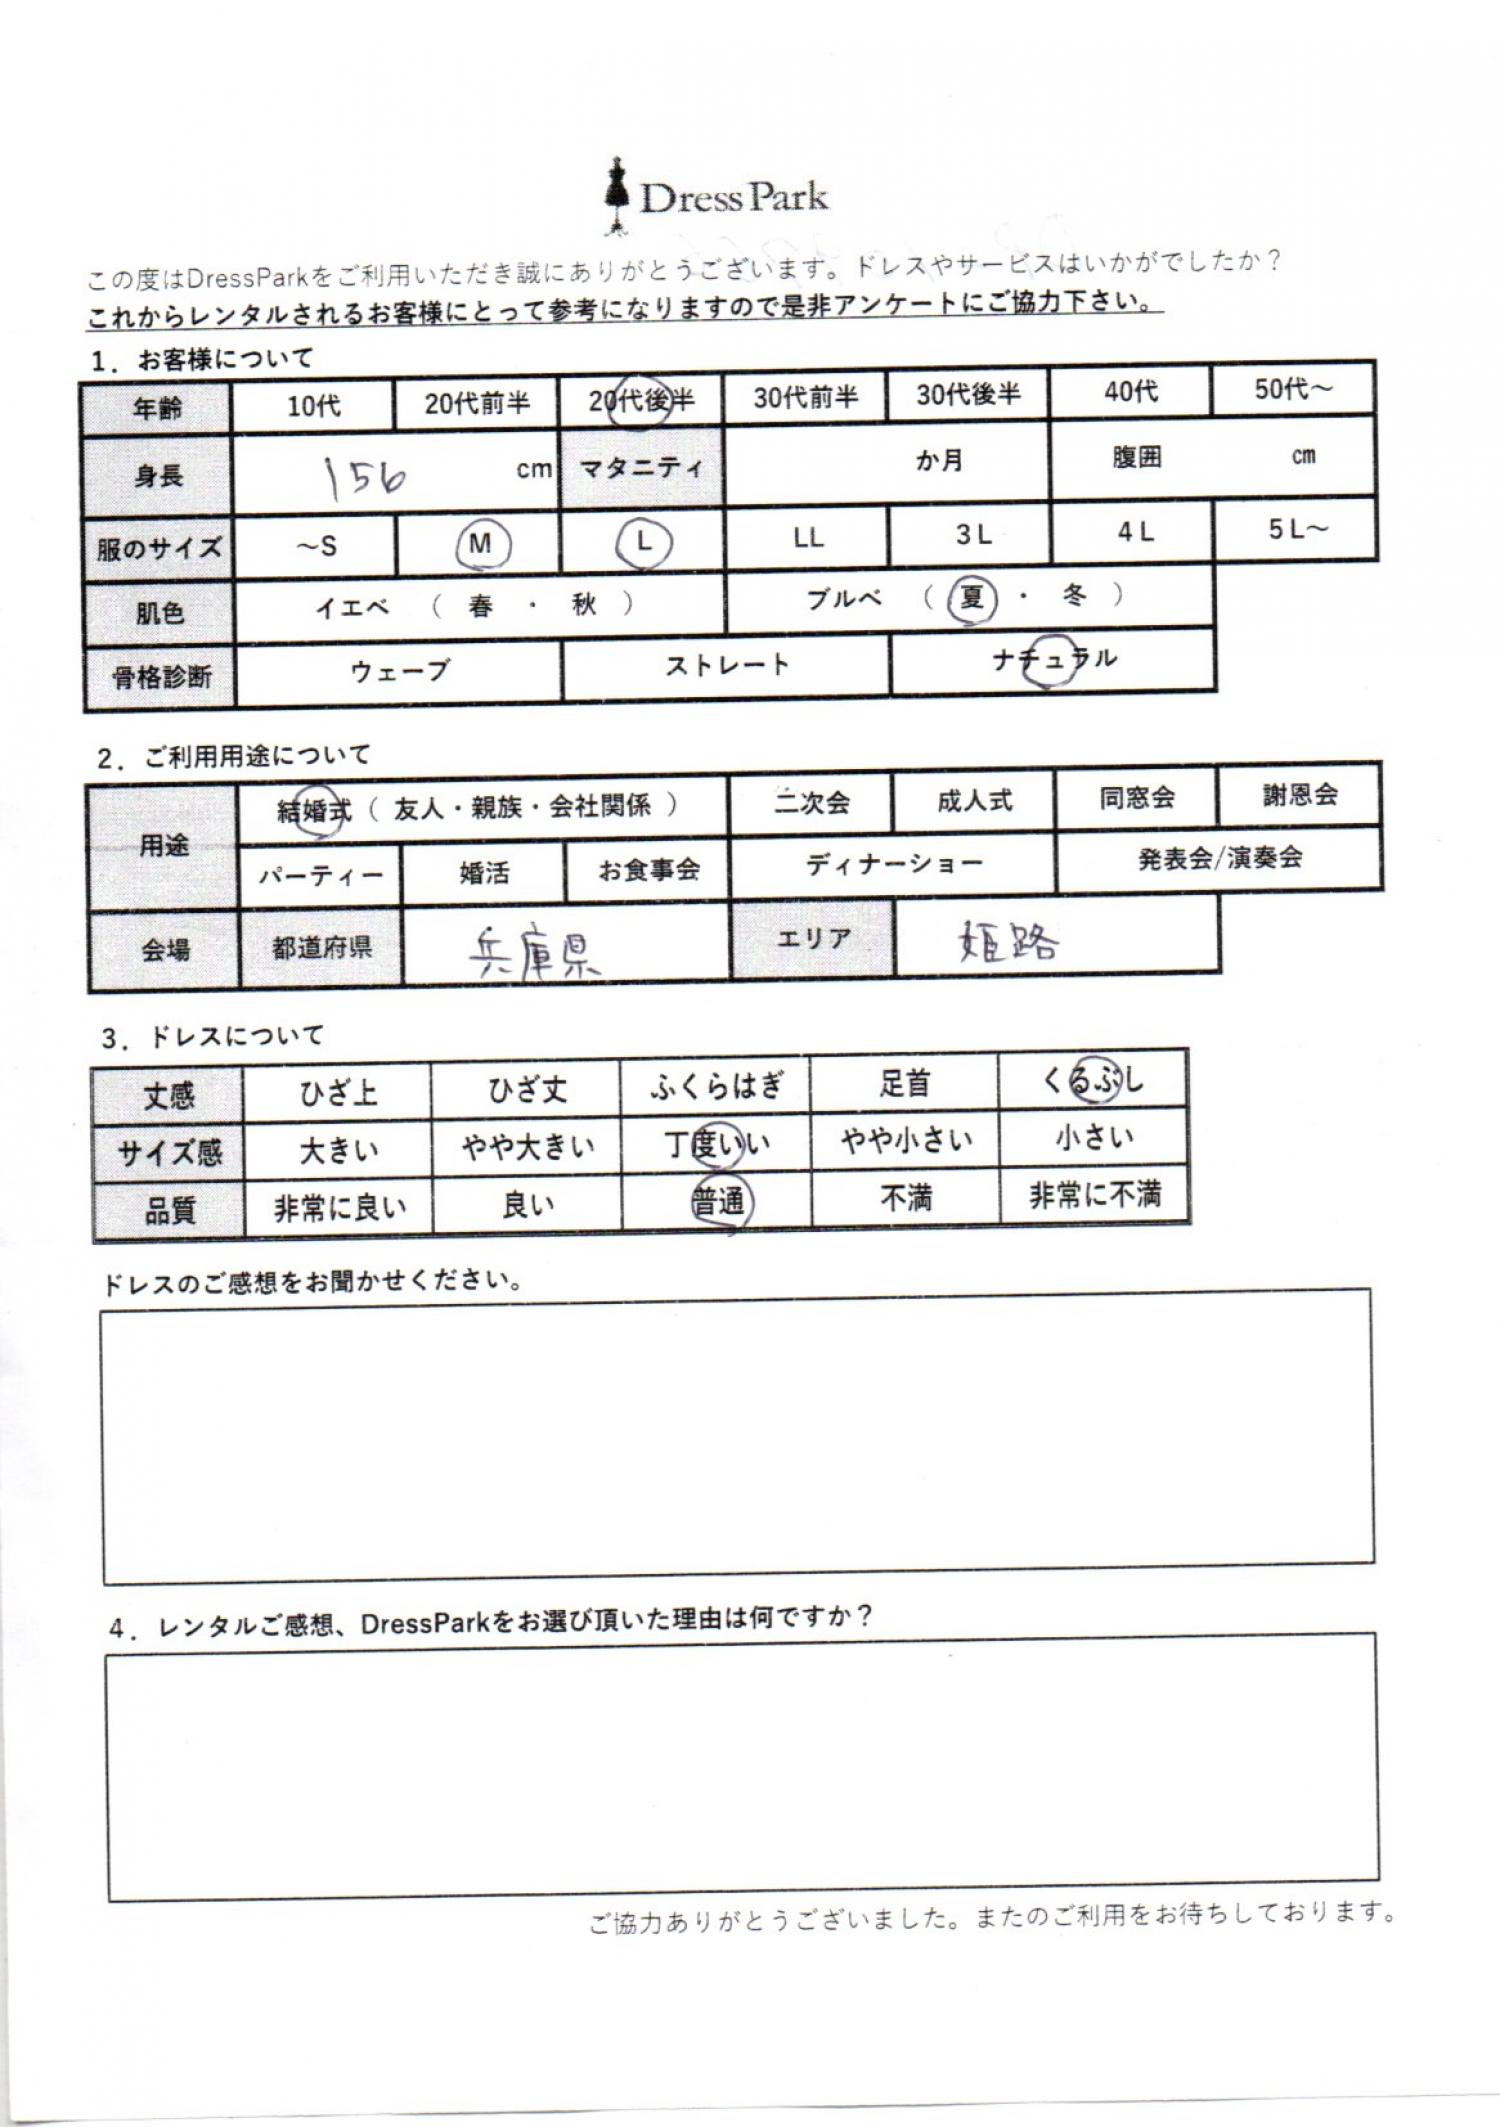 DressPark
この度はDressParkをご利用いただき誠にありがとうございます。ドレスやサービスはいかがでしたか？
これからレンタルされるお客様にとって参考になりますので是非アンケートにご協力下さい。
1．お客様について
年齢 10代 20代前半 20代後半 30代前半 30代後半 40代 50代～
身長 156 cm マタニティ か月 腹囲 ㎝
服のサイズ ～S M L LL 3L 4L 5L～
肌色 イエベ （ 春 ・ 秋 ） ブルベ （ 夏 ・ 冬 ）
骨格診断 ウェーブ ストレート ナチュラル
2．ご利用用途について
用途 結婚式（ 友人・親族・会社関係 ） 二次会 成人式 同窓会 謝恩会
パーティー 婚活 お食事会 ディナーショー 発表会/演奏会
会場 都道府県 兵庫県 エリア 姫路
3．ドレスについて
丈感 ひざ上 ひざ丈 ふくらはぎ 足首 くるぶし
サイズ感 大きい やや大きい 丁度いい やや小さい 小さい
品質 非常に良い 良い 普通 不満 非常に不満
ドレスのご感想をお聞かせください。
4．レンタルご感想、DressParkをお選び頂いた理由は何ですか？
ご協力ありがとうございました。またのご利用をお待ちしております。